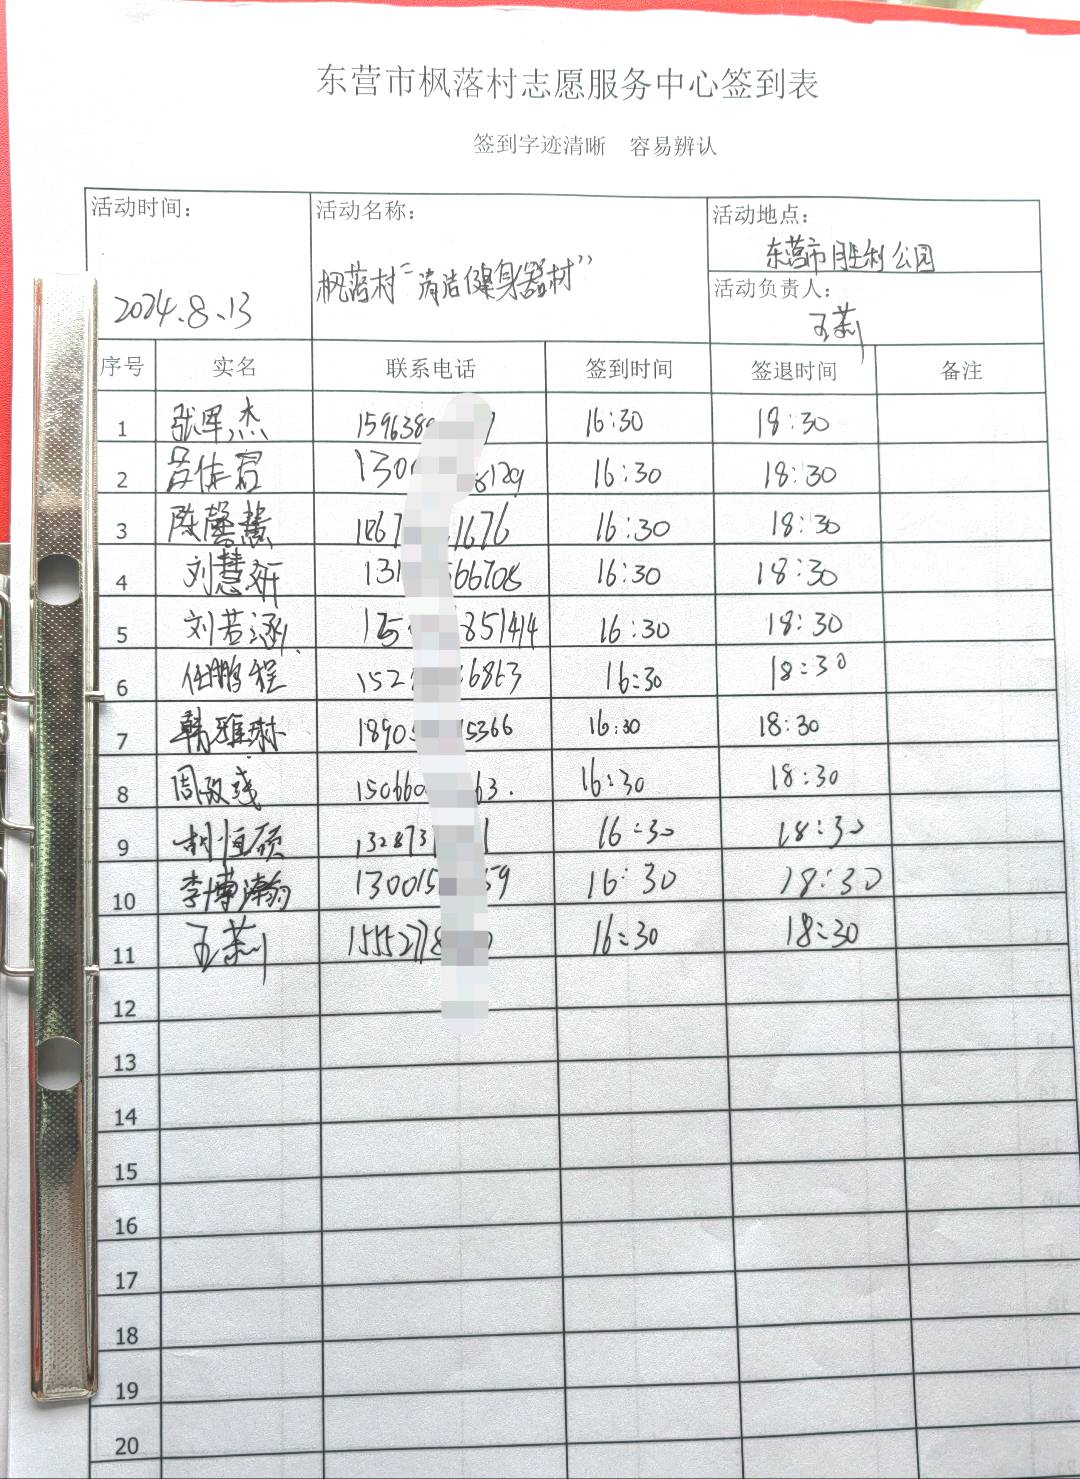 东营市枫落村志愿服务中心签到表
签到字迹清晰 容易辨认
活动时间： 活动名称： 活动地点：
东营市胜利公园
2024.8.13 枫落村“清洁健身器材” 活动负责人：
王莉
序号 实名 联系电话 签到时间 签退时间 备注
1 张军杰 159638 7 16:30 18:30
2 吕佳君 130 8129 16:30 18:30
3 陈馨慧 1867 1676 16:30 18:30
4 刘慧妍 131 566708 16:30 18:30
5 刘若涵 15 851414 16:30 18:30
6 任鹏程 152 6863 16:30 18:30
7 韩雅琳 1890 5366 16:30 18:30
8 周 150660 63. 16:30 18:30
9 恒硕 132873 1 16:30 18:30
10 李博瀚 130015 59 16:30 18:30
11 王莉 15552778 16:30 18:30
12
13
14
15
16
17
18
19
20